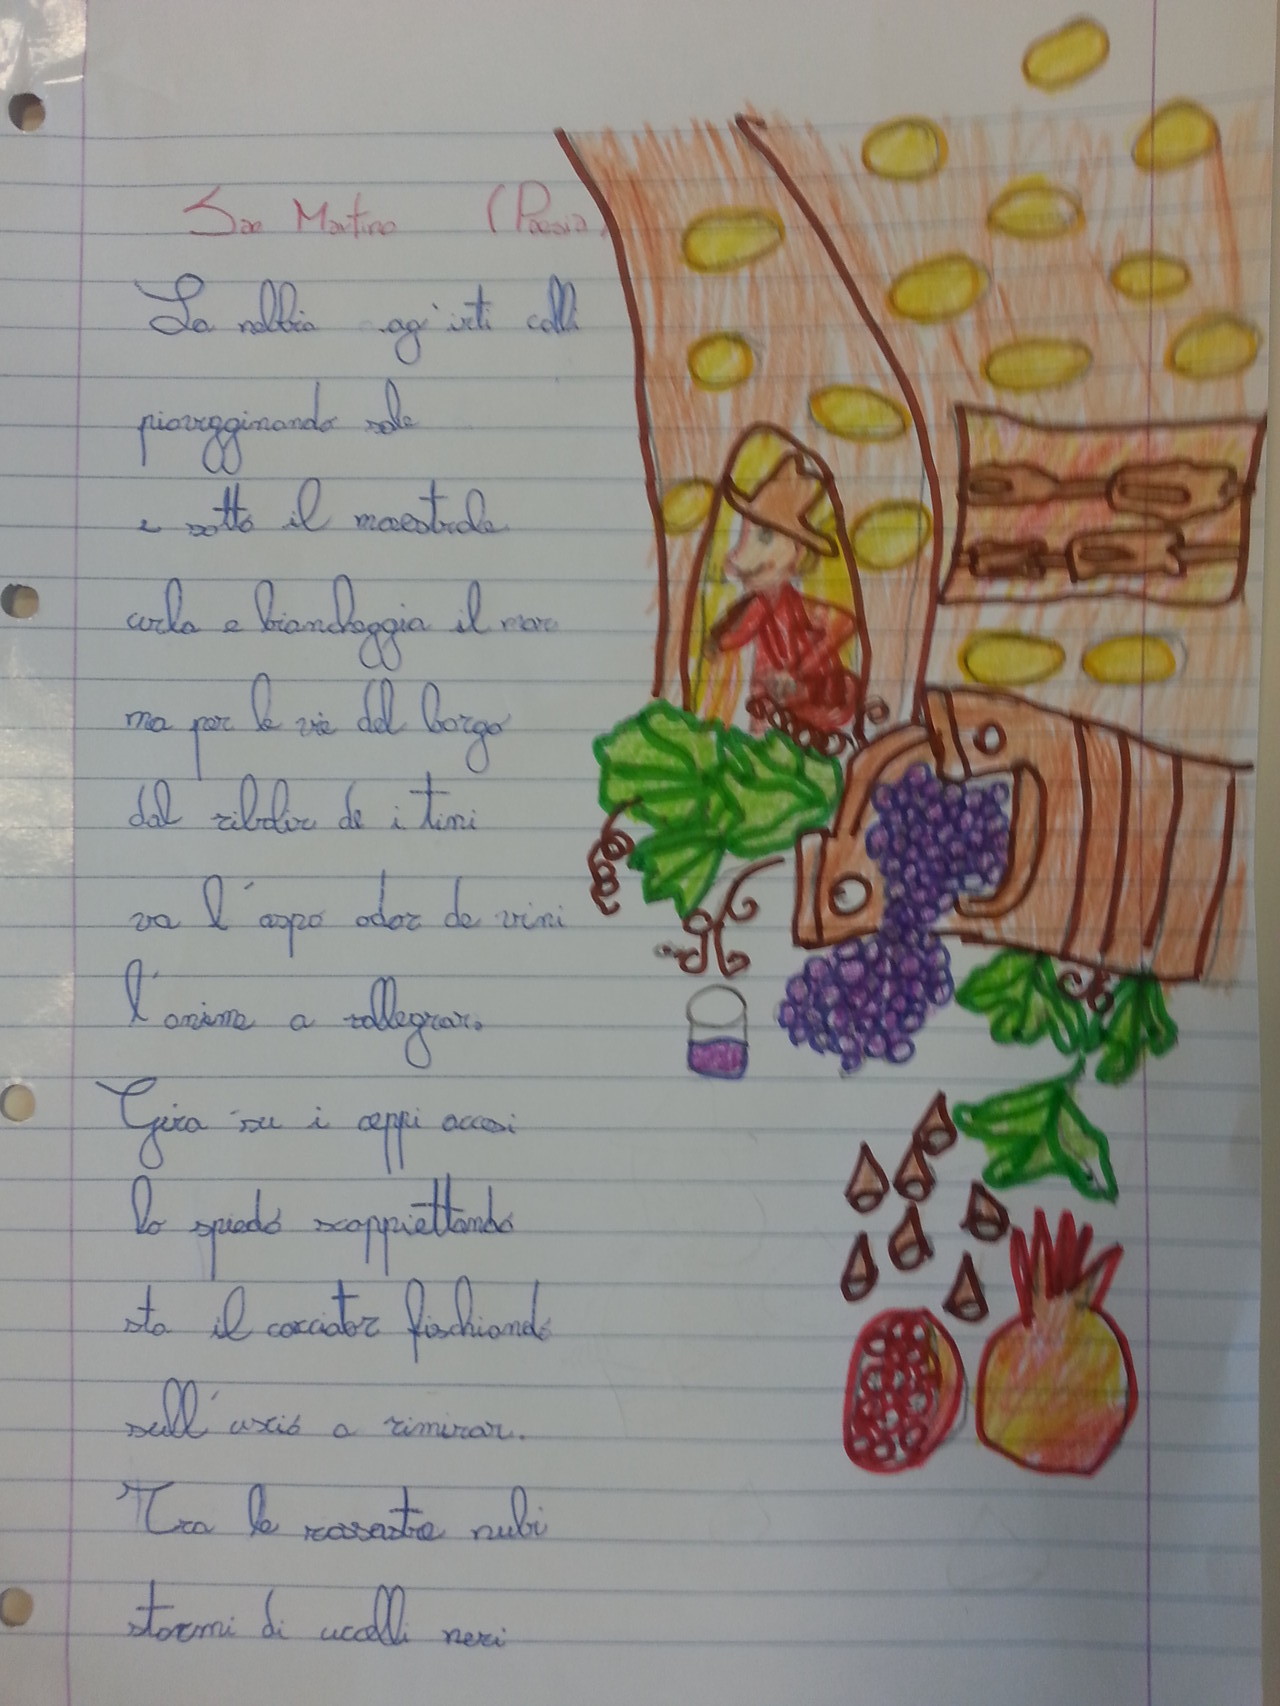 San Martino (Poesia)
La nebbia agl'irti colli
piovigginando sale
e sotto il maestrale
urla e biancheggia il mar
ma per le vie del borgo
dal ribolir de i tini
va l'aspo odor de vini
l'anime a rallegrar.
Gira su i ceppi accesi
lo spiedo scoppiettando
sta il cacciator fischiando
sull'uscio a rimirar.
Tra le rossastre nubi
stormi di uccelli neri